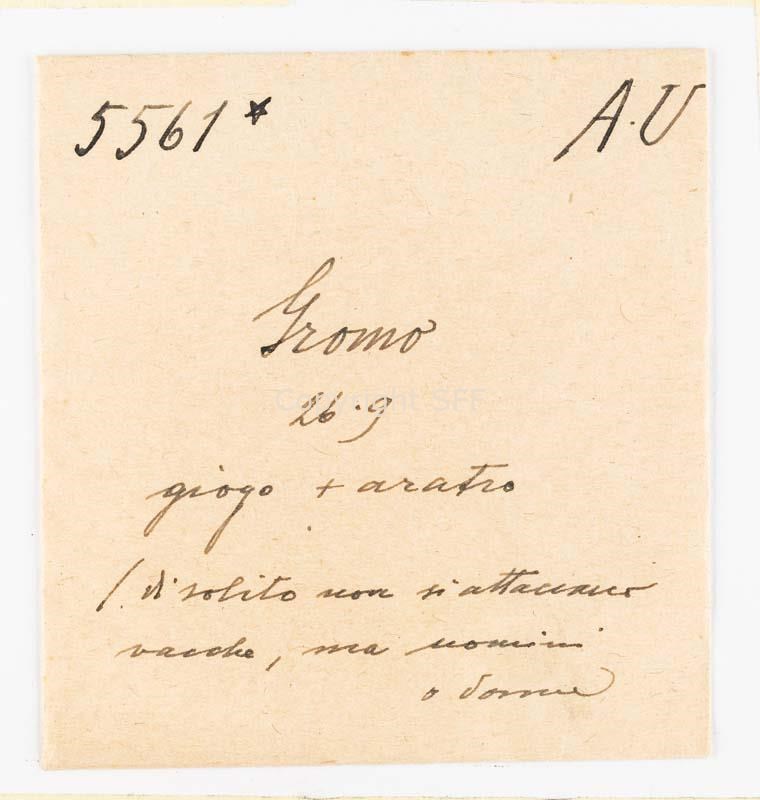 5561* A.U
Gromo
26.9
Copyright SEF
giogo + aratro
(di solito non si attaccano
vacche, ma uomini
o donne)